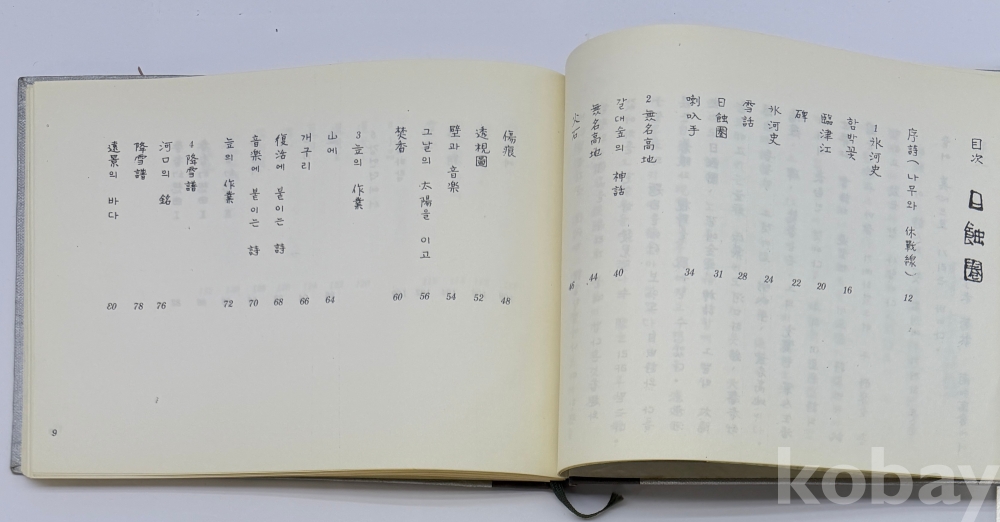 目次 日蝕圈
序詩(나무와 休戰線) 12
1 氷河史
함박꽃 16
臨津江 20
碑 22
氷河史 24
雪話 28
日蝕圈 31
喇叭手 34
2 無名高地
갈대숲의 神話 40
無名高地 44
火石 46
傷痕 48
透視圖 52
壁과 音樂 54
그날의 太陽을 이고 56
焚香 60
3 눈의 作業
山에 64
개구리 66
復活에 붙이는 詩 68
音樂에 붙이는 詩 70
눈의 作業 72
4 降雪譜
河口의 銘 76
降雪譜 78
遠景의 바다 80
9
kobay